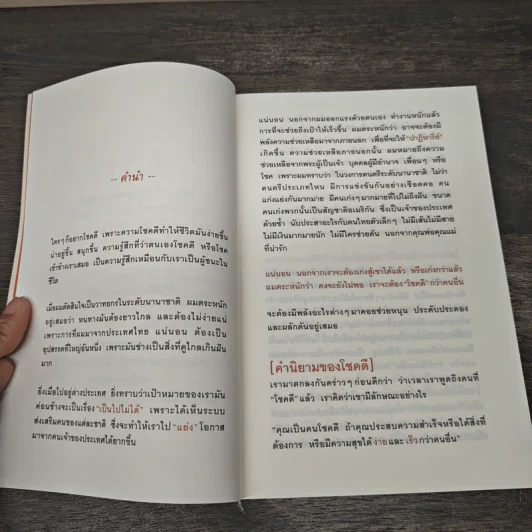 -- คำนำ --
ใครๆ ก็อยากโชคดี เพราะความโชคดีทำให้ชีวิตมันง่ายขึ้น
น่าอยู่ขึ้น สนุกขึ้น ความรู้สึกที่ว่าตนเองโชคดี หรือโชค
เข้าข้างเราเสมอ เป็นความรู้สึกเหมือนกับเราเป็นผู้ชนะใน
ชีวิต
เมื่อผมตัดสินใจเป็นวาทยกรในระดับนานาชาติ ผมตระหนัก
อยู่เสมอว่า หนทางมันต้องยาวไกล และต้องไม่ง่ายแน่
เพราะการที่ผมมาจากประเทศไทย แน่นอน ต้องเป็น
อุปสรรคที่ใหญ่อันหนึ่ง เพราะมันช่างเป็นสิ่งที่ดูไกลเกินฝัน
มาก
ยิ่งเมื่อไปอยู่ต่างประเทศ ยิ่งทราบว่าเป้าหมายของเรามัน
ค่อนข้างจะเป็นเรื่อง "เป็นไปไม่ได้" เพราะได้เห็นระบบ
ส่งเสริมคนของแต่ละชาติ ซึ่งจะทำให้เราไป "แย่ง" โอกาส
มาจากคนเจ้าของประเทศได้ยากขึ้น
แน่นอน นอกจากผมออกแรงด้วยตนเอง ทำงานหนักแล้ว
การที่จะช่วยถึงเป้าให้เร็วขึ้น ผมตระหนักว่า อาจจะต้องมี
พลังความช่วยเหลือมาจากภายนอก เพื่อที่จะให้ "ปาฏิหาริย์"
เกิดขึ้น ความช่วยเหลือภายนอกนั้น ผมหมายถึงความ
ช่วยเหลือจากพระผู้เป็นเจ้า บุคคลผู้มีอำนาจ เพื่อนๆ หรือ
โชค เพราะผมทราบว่า ในวงการดนตรีระดับนานาชาติ ไม่ว่า
ดนตรีประเภทไหน มีการแข่งขันกันอย่างเชือดคอ คน
แก่งแย่งกันมากมาย มีคนเก่งๆ มากมายที่ไปไม่ถึงฝัน ขนาด
คนเก่งพวกนั้นเป็นสัญชาติอเมริกัน ซึ่งเป็นเจ้าของประเทศ
ด้วยซ้ำ นับประสาอะไรกับคนไทยตัวเล็กๆ ไม่มีเส้นไม่มีสาย
ไม่มีเงินมากมายนัก ไม่มีใครช่วยดัน นอกจากคุณพ่อคุณแม่
ที่น่ารัก
แน่นอน นอกจากเราจะต้องเก่งสู้เขาได้แล้ว หรือเก่งกว่าแล้ว
ผมตระหนักว่า คงจะยังไม่พอ เราจะต้อง "โชคดี" กว่าคนอื่น
จะต้องมีพลังอะไรต่างๆ มาคอยช่วยหนุน ประคับประคอง
และผลักดันอยู่เสมอ
[คำนิยามของโชคดี]
เรามาตกลงกันคร่าวๆ ก่อนดีกว่า ว่าเวลาเราพูดถึงคนที่
"โชคดี" แล้ว เราคิดว่าเขามีลักษณะอย่างไร
"คุณเป็นคนโชคดี ถ้าคุณประสบความสำเร็จหรือได้สิ่งที่
ต้องการ หรือมีความสุขได้ ง่าย และ เร็ว กว่าคนอื่น"